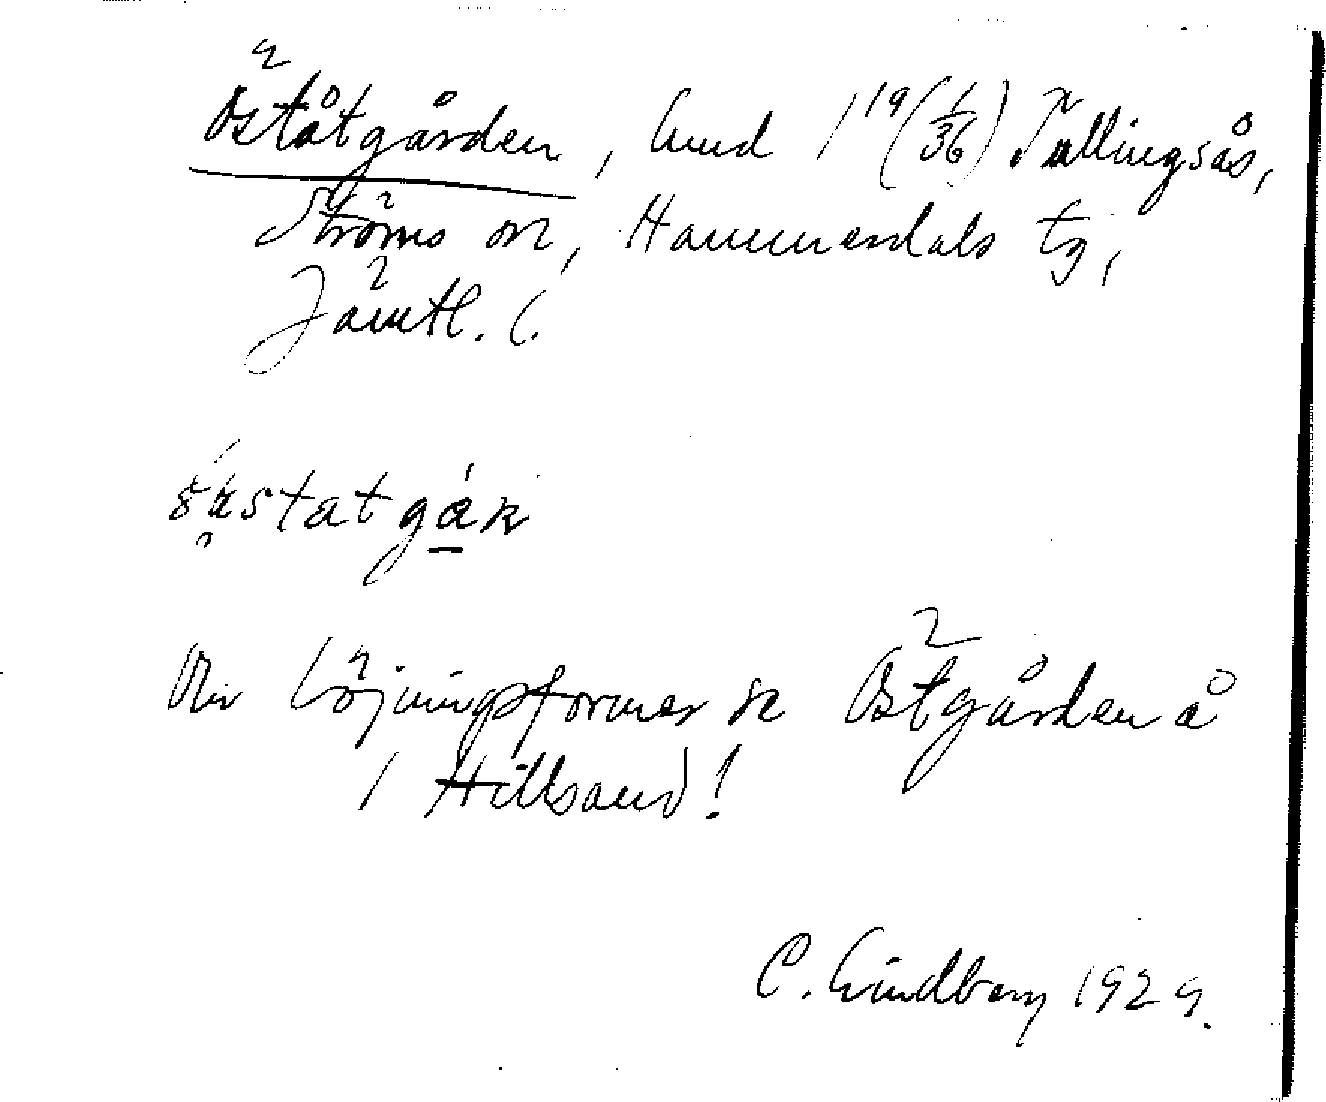 Öståtgården, hmd 1¹⁹(1/36) Tullingsås,
Ströms sn, Hammerdals tg,
Jämtl. l.
Om böjningsformer se Östgården å
i Hillsand!
C. Lindberg 1929.